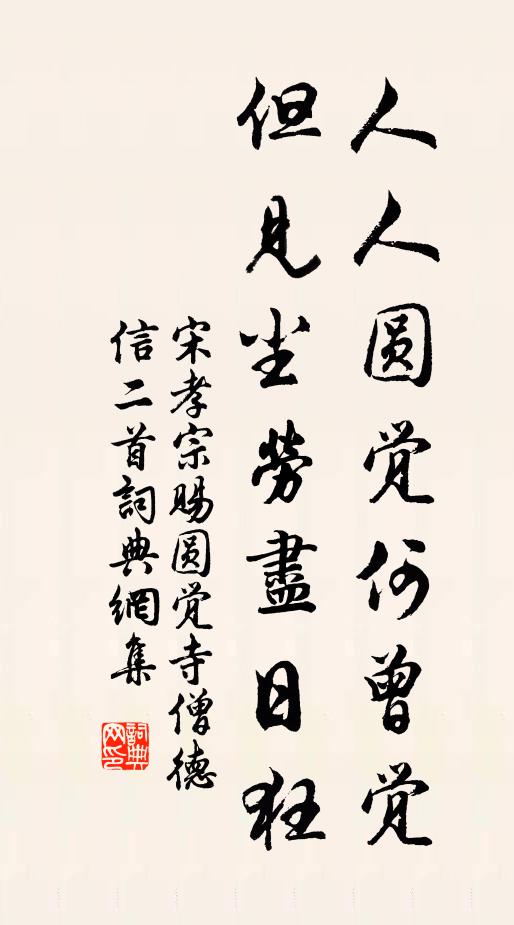 人人圆觉何曾觉
但見尘勞盡日狂
宋孝宗賜圆觉寺僧德
信二首詞典網集
詞典
网印